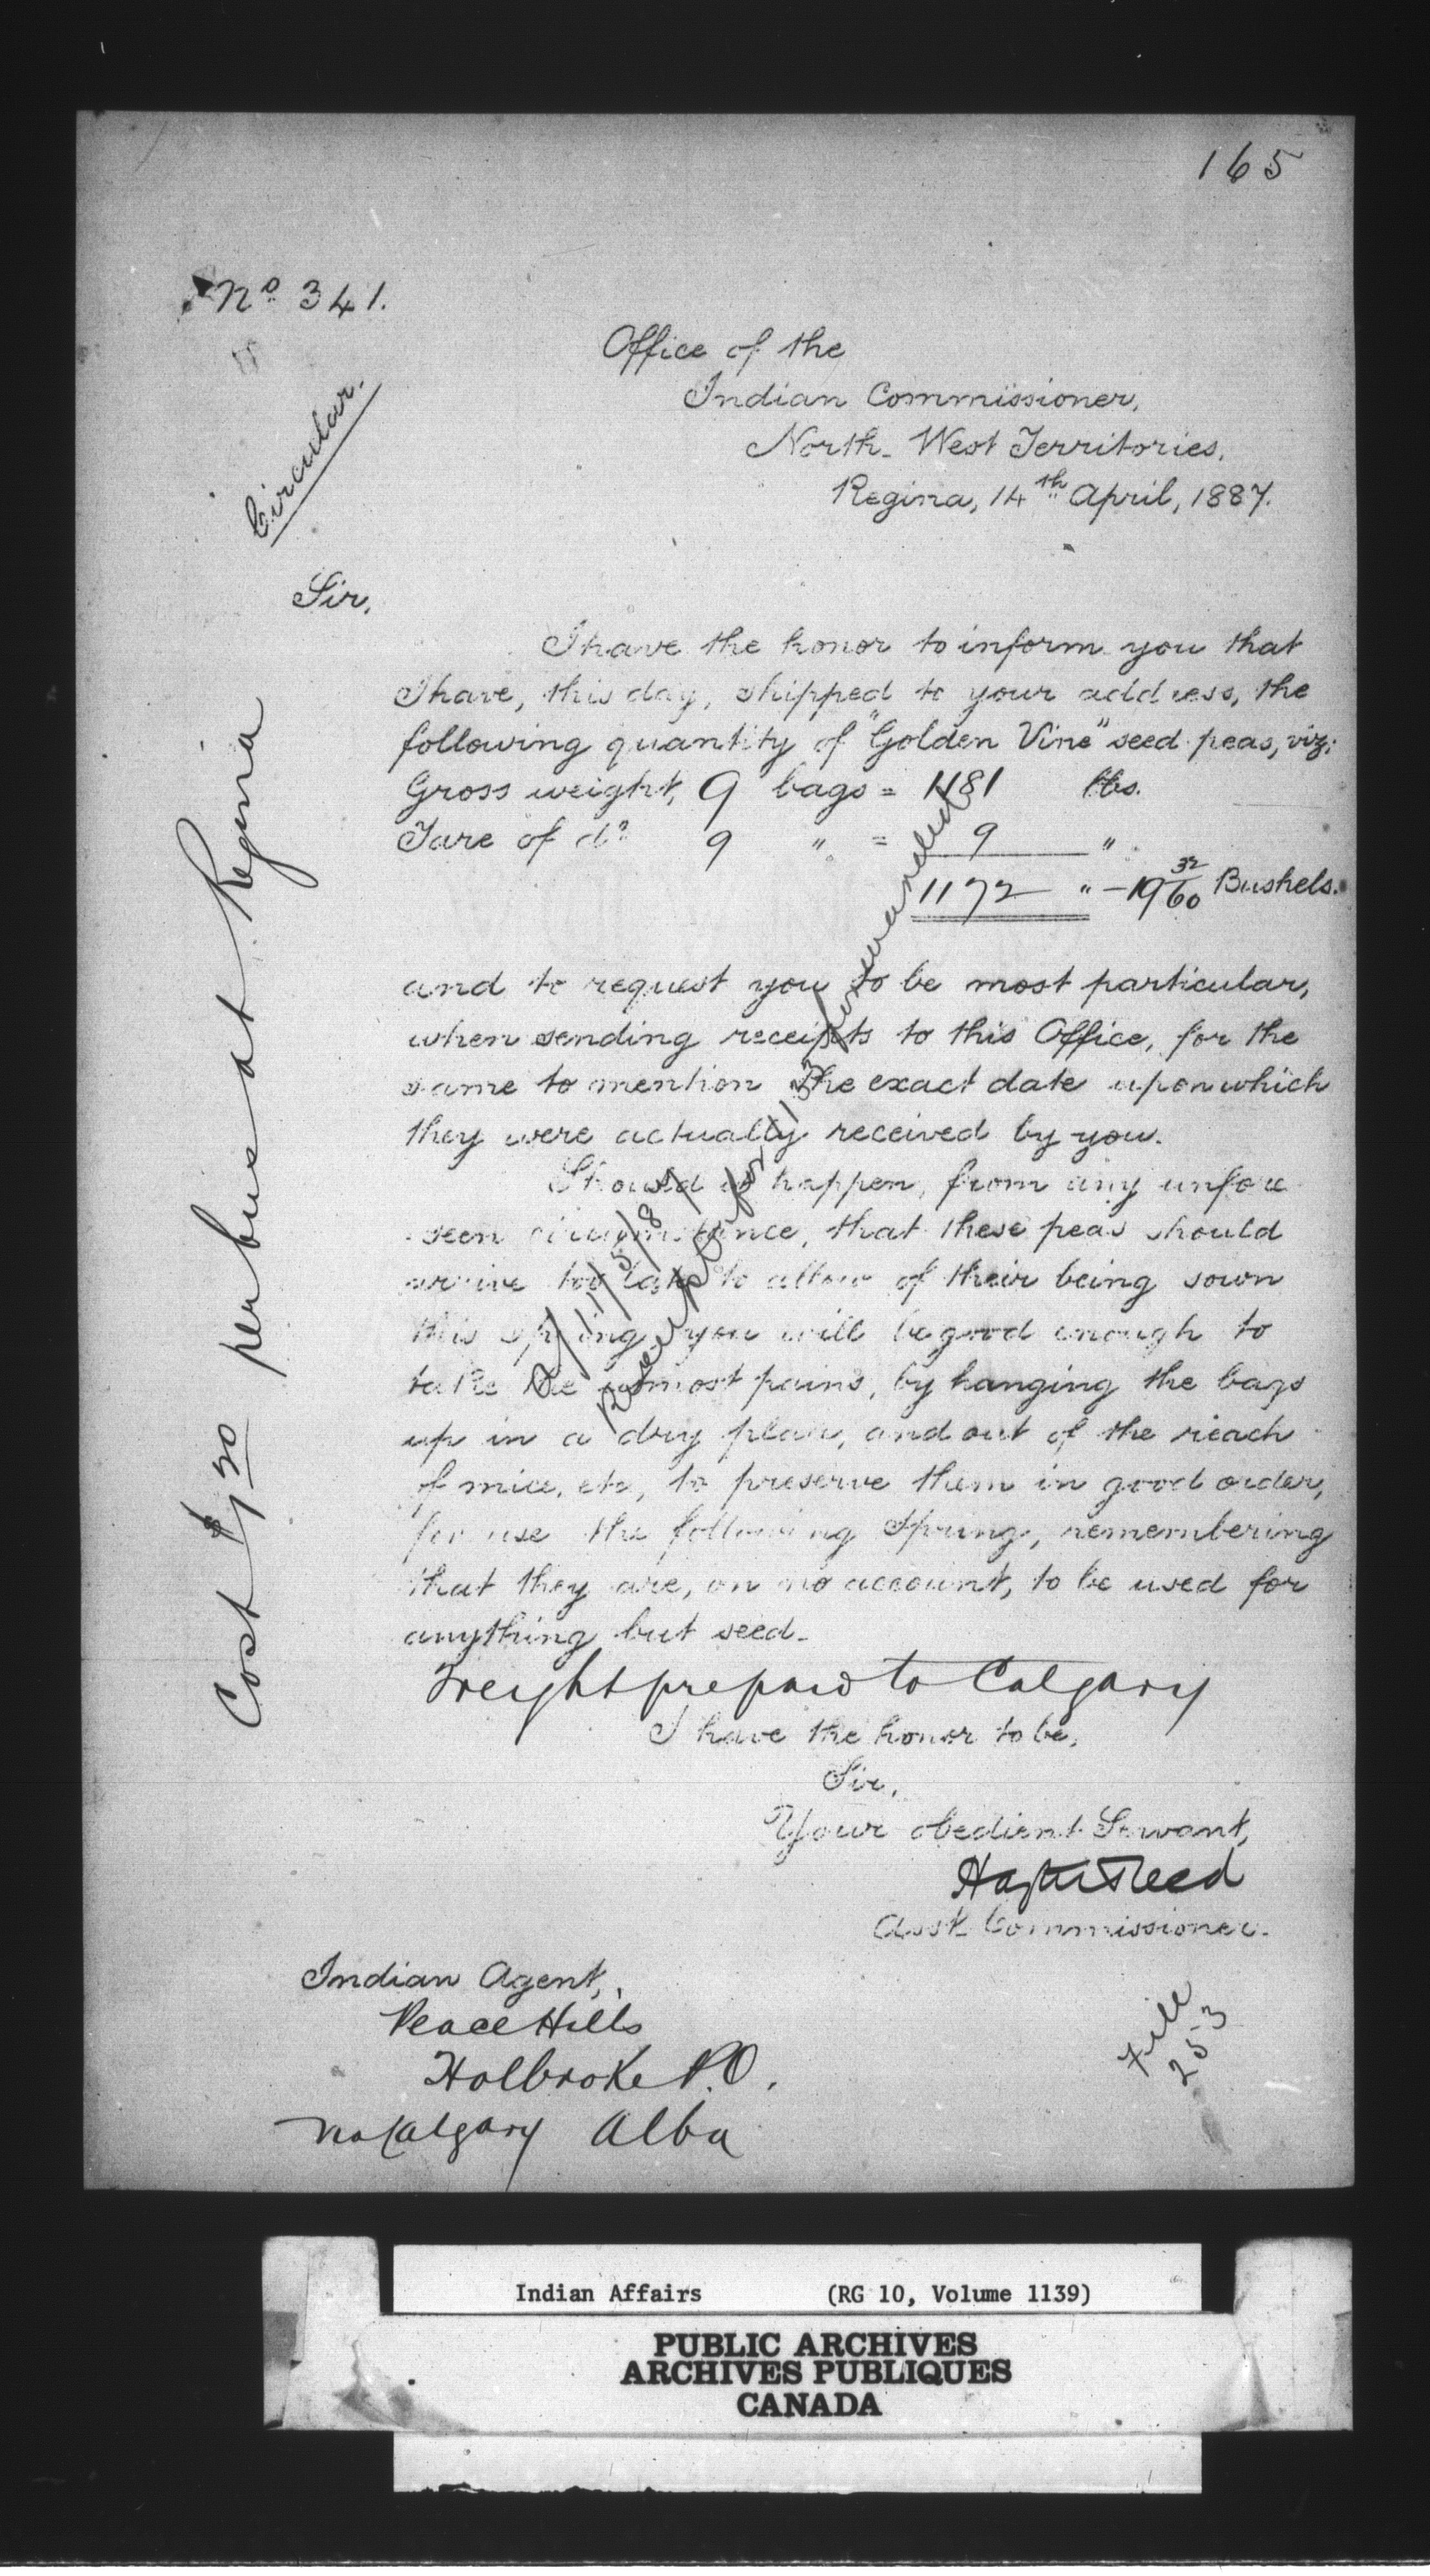 165
No 341.
Circular.
Office of the
Indian Commissioner,
North-West Territories.
Regina, 14th April, 1887.
Sir,
I have the honor to inform you that
I have, this day, shipped to your address, the
following quantity of "Golden Vine" seed peas, viz:
Gross weight, 9 bags = 1181 lbs.
Tare of do 9 " = 9 "
1172 " - 19 32/60 Bushels.
and to request you to be most particular,
when sending receipts to this Office, for the
same to mention the exact date upon which
they were actually received by you.
Should it happen, from any unfore
seen circumstance, that these peas should
arrive too late to allow of their being sown
this spring you will be good enough to
take the utmost pains, by hanging the bags
up in a dry place, and out of the reach
of mice, etc, to preserve them in good order,
for use the following Spring, remembering
that they are, on no account, to be used for
anything but seed.
Freight prepaid to Calgary
I have the honor to be,
Sir,
Your obedient Servant,
Hayter Reed
Asst Commissioner.
Indian Agent,
Peace Hills
Holbroke P.O.
via Calgary Alba
File
253
Cost $1.20 per bus at Regina
11/5/87
Receipt
Indian Affairs (RG 10, Volume 1139)
PUBLIC ARCHIVES
ARCHIVES PUBLIQUES
CANADA